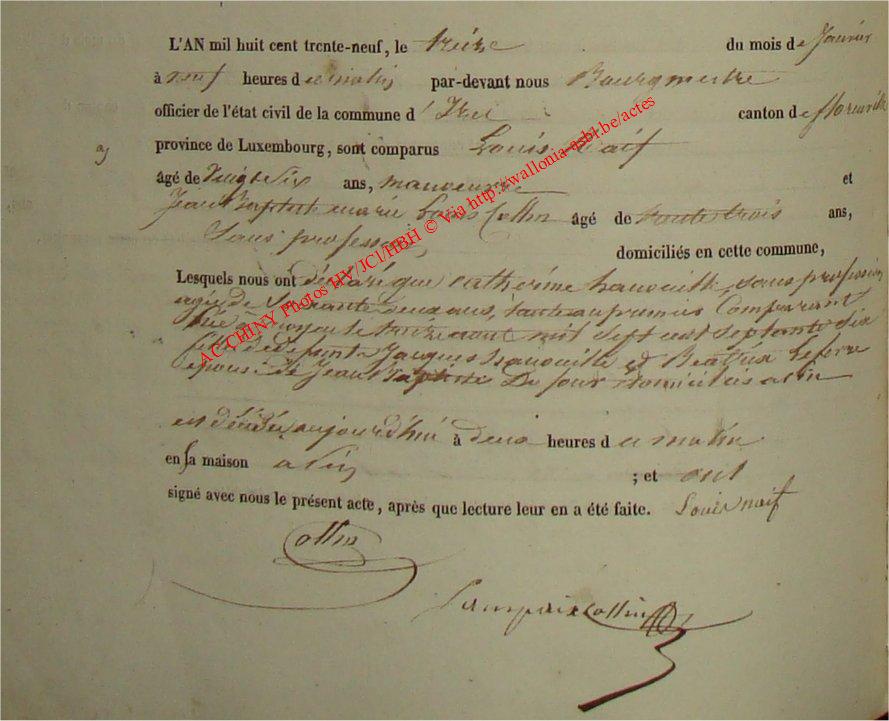 L'AN mil huit cent trente-neuf, le treize du mois de Janvier
à neuf heures du matin par-devant nous Bourgmestre
officier de l'état civil de la commune d'Izel canton de florenville
province de Luxembourg, sont comparus Louis naif
âgé de Vingt Six ans, manoeuvre et
Jean Baptiste marie Louis Collin âgé de trente trois ans,
Sans profession, domiciliés en cette commune,
Lesquels nous ont déclaré que catherine hanouille, sans profession
agée de Soixante deux ans, tante au premier Comparant
née à le aout mil sept cent septante six
fille de defunts Jacques hanouille et Beatrix Lefevre
epouse de Jean Baptiste De four domiciliés a
est décédée aujourd'hui à deux heures du matin
en sa maison a ; et ont
signé avec nous le présent acte, après que lecture leur en a été faite. Louis naif
Collin
Lampaix Collin
AC-CHINY Photos HY/JCl/HBH © Via http://wallonia-asbl.be/actes